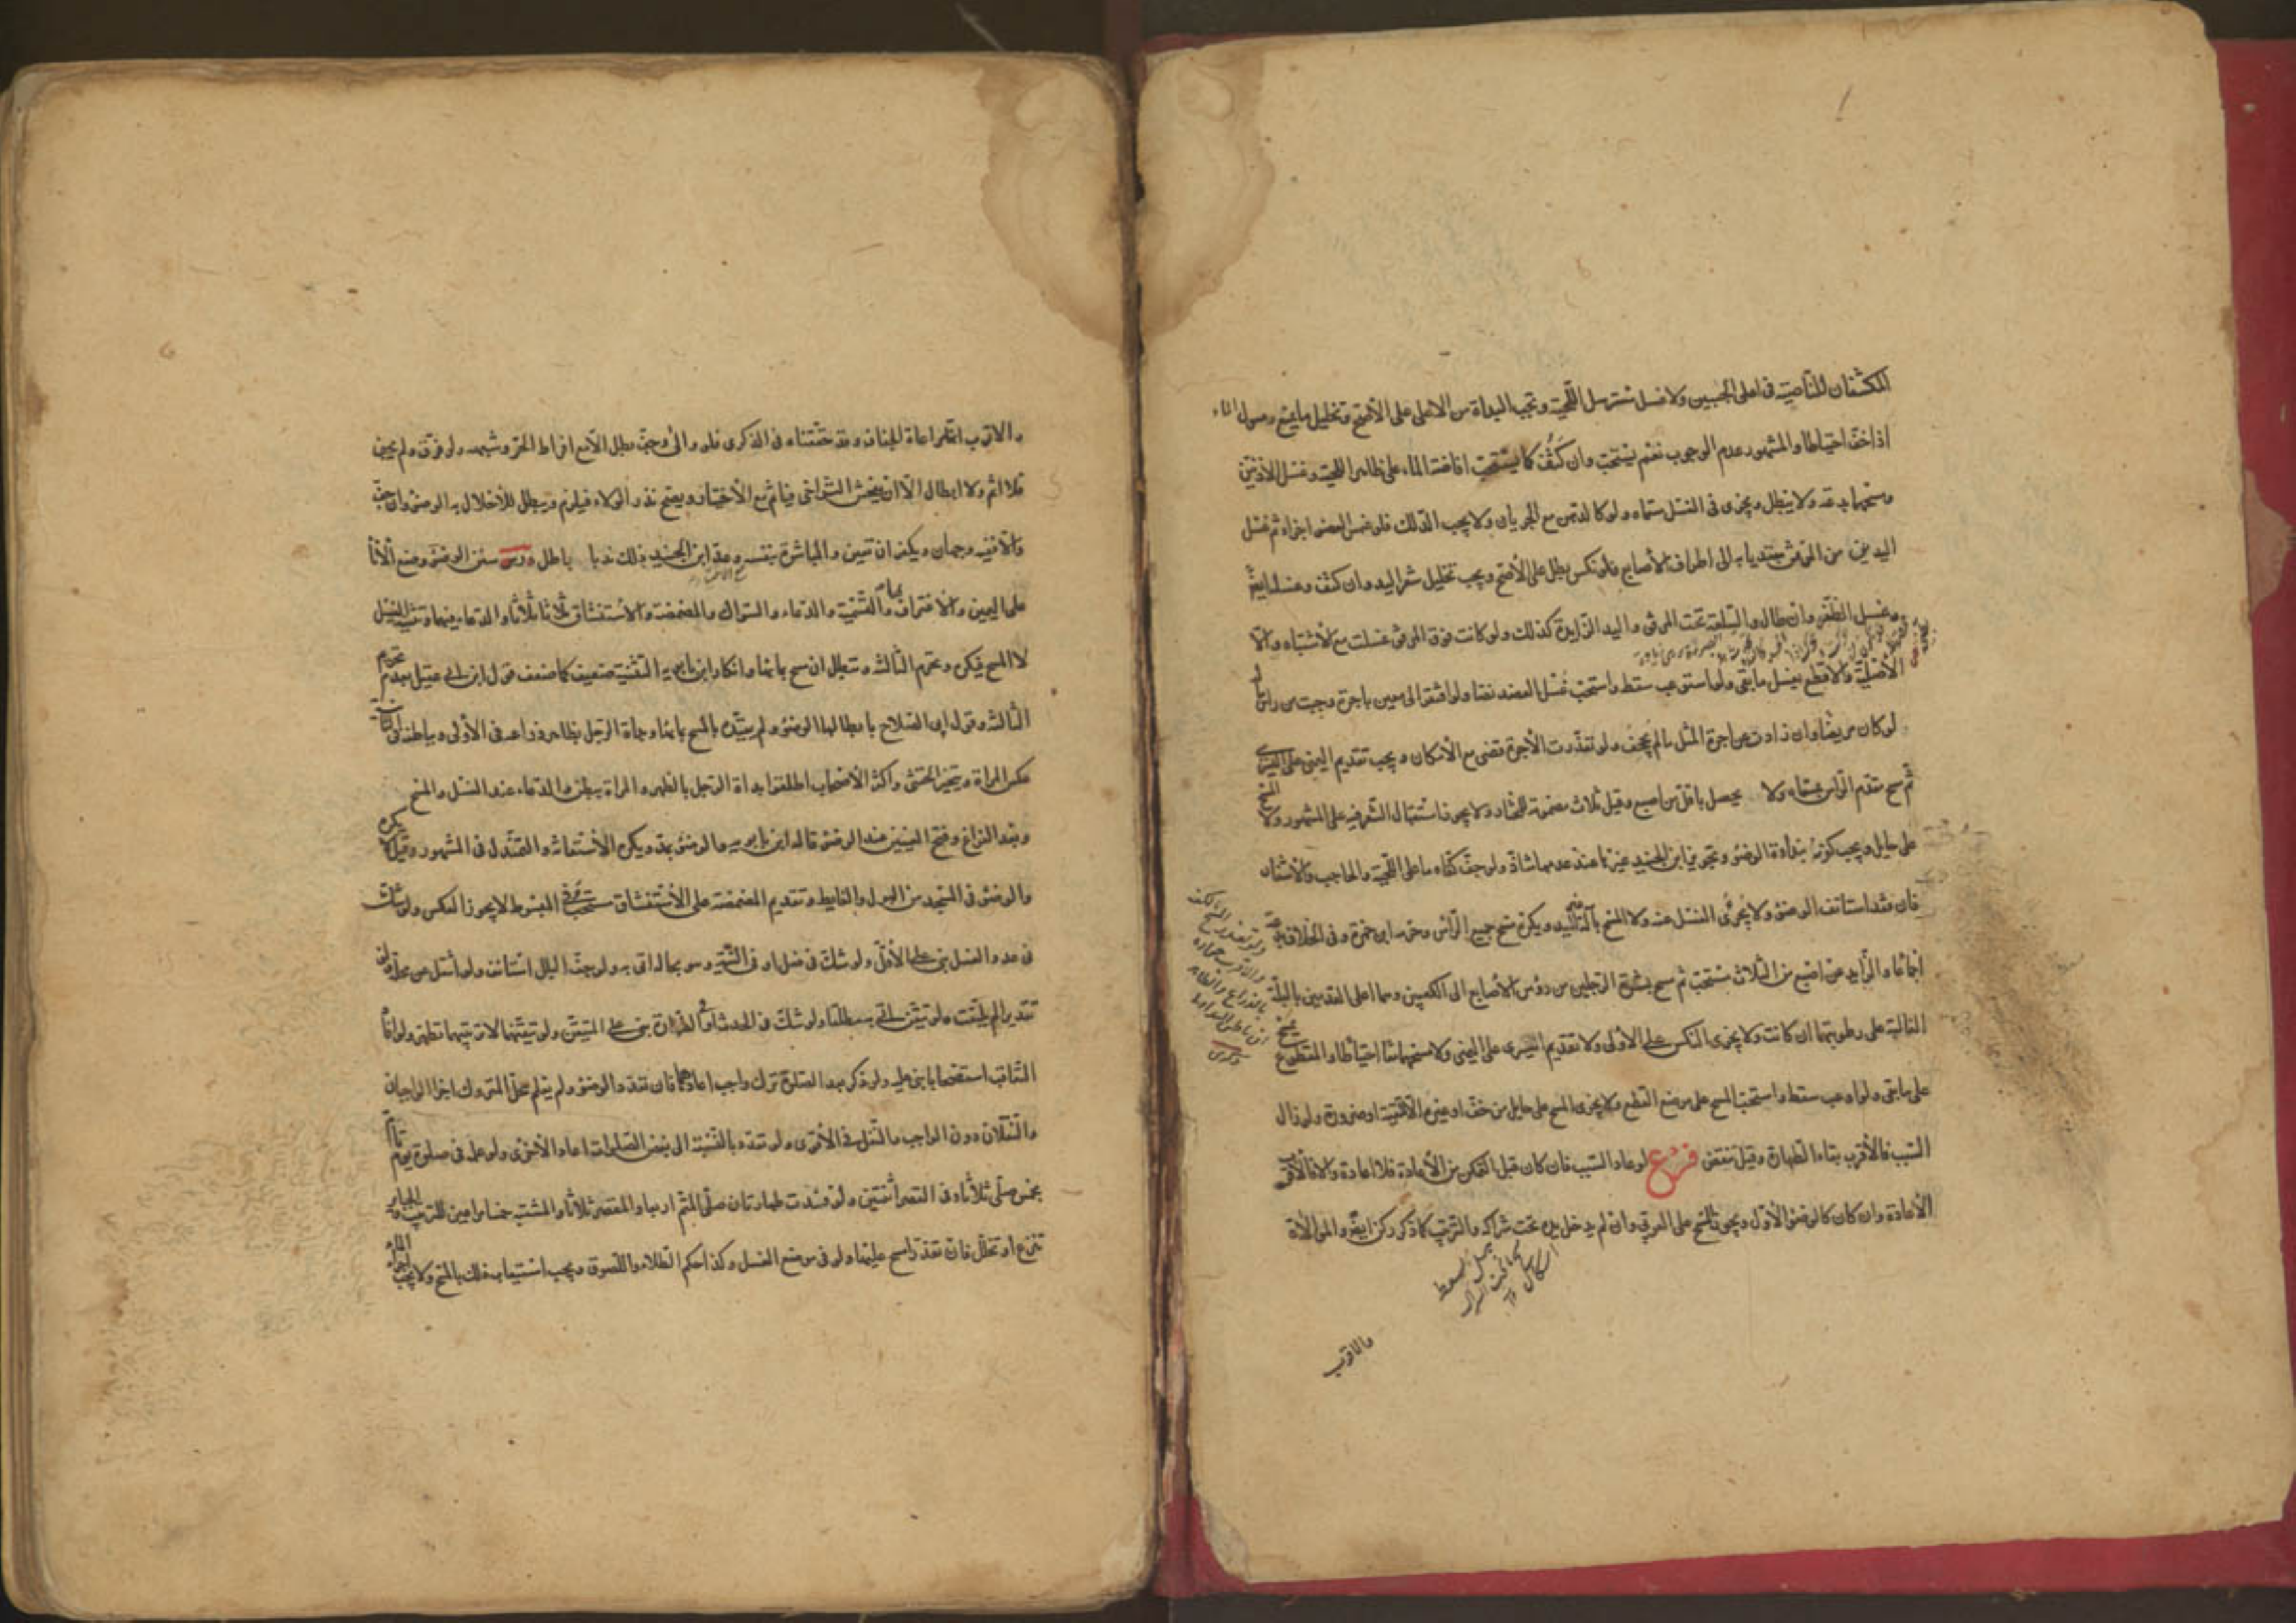 المكتنفان للناصية في اعلى الجبينين ولا غسل مسترسل اللحية وتجب البداة من الاعلى على الأصح وتخليل ما يمنع وصول الماء
اذا خف احتياطا والمشهور عدم الوجوب نعم يستحب وان كثف كما يستحب افاضة الماء على ظاهر اللحية وغسل الاذنين
ومسحهما بدعة ولا يبطل ويجزى في الغسل مسماه ولو كالدهن مع الجريان ولا يجب الدلك فلو غمس العضو اجزاء ثم غسل
اليدين من المرفق مبتديا به الى اطراف الأصابع فلو نكس بطل على الأصح ويجب تخليل شعر اليد وان كثف وغسله ايضا
وغسل الظفر وان طال والسلعة تحت المرفق واليد الزايدة كذلك ولو كانت فوق المرفق غسلت مع الاشتباه والا
الأصلية والاقطع يغسل ما بقى ولو استوعب سقط واستحب غسل العضد نصا ولو افتقر الى معين باجرة وجبت من راس
لو كان مريضا وان زادت عن اجرة المثل ما لم يجحف ولو تعذرت الأجرة قضى مع الأمكان ويجب تقديم اليمنى على اليسرى
ثم مسح مقدم الراس بمسماه ولا يحصل باقل من اصبع وقيل ثلاث مضمومة للمختار ولا يجوز استقبال الشعر فيه على المشهور ولا المسح
على حايل ويجب كونه بنداوة الوضوء وتجويز ابن الجنيد غيرها عند عدمها شاذ ولو جف كفاه ما على اللحية والحاجب والاشفار
فان فقد استانف الوضوء ولا يجزى الغسل عنه ولا المسح بآلة غير اليد ويكره مسح جميع الراس وحرمه ابن حمزة وفي الخلاف بدعة
اجماعا والزايد عن اصبع من الثلاث مستحب ثم مسح بشرة الرجلين من رؤس الأصابع الى الكعبين وهما اعلى القدمين بالبلة
الغالبة على رطوبتهما ان كانت ولا يجزى النكس على الاولى ولا تقديم اليسرى على اليمنى ولا مسحهما معا احتياطا والمقطوع يمسح
على ما بقى ولو اوعب سقط واستحب المسح على موضع القطع ولا يجزى المسح على حايل من خف او غيره الا لتقية او ضرورة ولو زال
السبب فالأقرب بقاء الطهارة وقيل ينقض فرع لو عاد السبب فان كان قبل التمكن من الأعادة فلا اعادة والا فالأقرب
الأعادة وان كان كالوضوء الأول ويجوز المسح على العربي وان لم يدخل يده تحت شراكه والترتيب كما ذكر ركن ايضا والموالاة
والاقرب
والاقرب انها مراعاة الجفاف وقد حققناه في الذكرى فلو والى وجف بطل الا مع افراط الحر وشبهه ولو فرق ولم يجف
فلا اثم ولا ابطال الا ان يفحش التراخى فياثم مع الأختيار ويصح نذر الولاء فيلزم ويبطل للأخلال به الوضوء وان جف
والا ففيه وجهان ويكفر ان تعين والمباشرة بنفسه وعد ابن الجنيد ذلك ندبا باطل درس سنن الوضوء وضع الأناء
على اليمين والاغتراف بها والتسمية والدعاء والسواك والمضمضة والاستنشاق ثلاثا ثلاثا والدعاء فيهما وتثنية الغسل
لا المسح فيكره وتحرم الثالثة وتبطل ان مسح بمائها وانكار ابن بابويه التثنية ضعيف كما ضعف قول ابن ابي عقيل بعدم تحريم
الثالثة وقول ابي الصلاح بابطالها الوضوء ولم يقيده بالمسح بمائها وبداة الرجل بظاهر ذراعه في الأولى وبباطنه في الثانية
عكس المراة ويتخير الخنثى واكثر الأصحاب اطلقوا بداة الرجل بالظهر والمراة ببطن والدعاء عند الغسل والمسح
وبعد الفراغ وفتح العينين عند الوضوء قاله ابن بابويه والوضوء بمد ويكره الأستعانة والتمندل في المشهور وقيل لا يكره
والوضوء في المسجد من البول والغايط وتقديم المضمضة على الأستنشاق مستحب وفي المبسوط لا يجوز العكس ولو شك
في عدد الغسل بنى على الأقل ولو شك في فعل او في النية وهو بحاله اتى به ولو جف البلل استانف ولو انتقل عن محله ولو
تقديرا لم يلتفت ولو تيقن اتى به مطلقا ولو شك في الحدث او الطهارة بنى على المتيقن ولو تيقنهما لا ترتيبهما تطهر ولو افاد
التعاقب استصحابا بنى عليه ولو ذكر بعد الصلوة ترك واجب اعادهما فان تعدد الوضوء ولم يعلم محل المتروك اجزا الواجبان
والنفلان دون الواجب والنفل في الأقوى ولو تعدد بالنسبة الى بعض الصلوات اعاد الأخرى ولو علمه في صلوة يوم تام
بخمس صلى ثلاثا وفي القصر اثنتين ولو فسدت طهارتان صلى المتم اربعا والمقصر ثلاثا والمشتبه خمسا مراعين للترتيب والجباير
تنزع او تخلل فان تعذر مسح عليها ولو في موضع الغسل وكذا حكم الطلاء واللصوق ويجب استيعاب ذلك بالمسح ولا يجب اجراء الماء